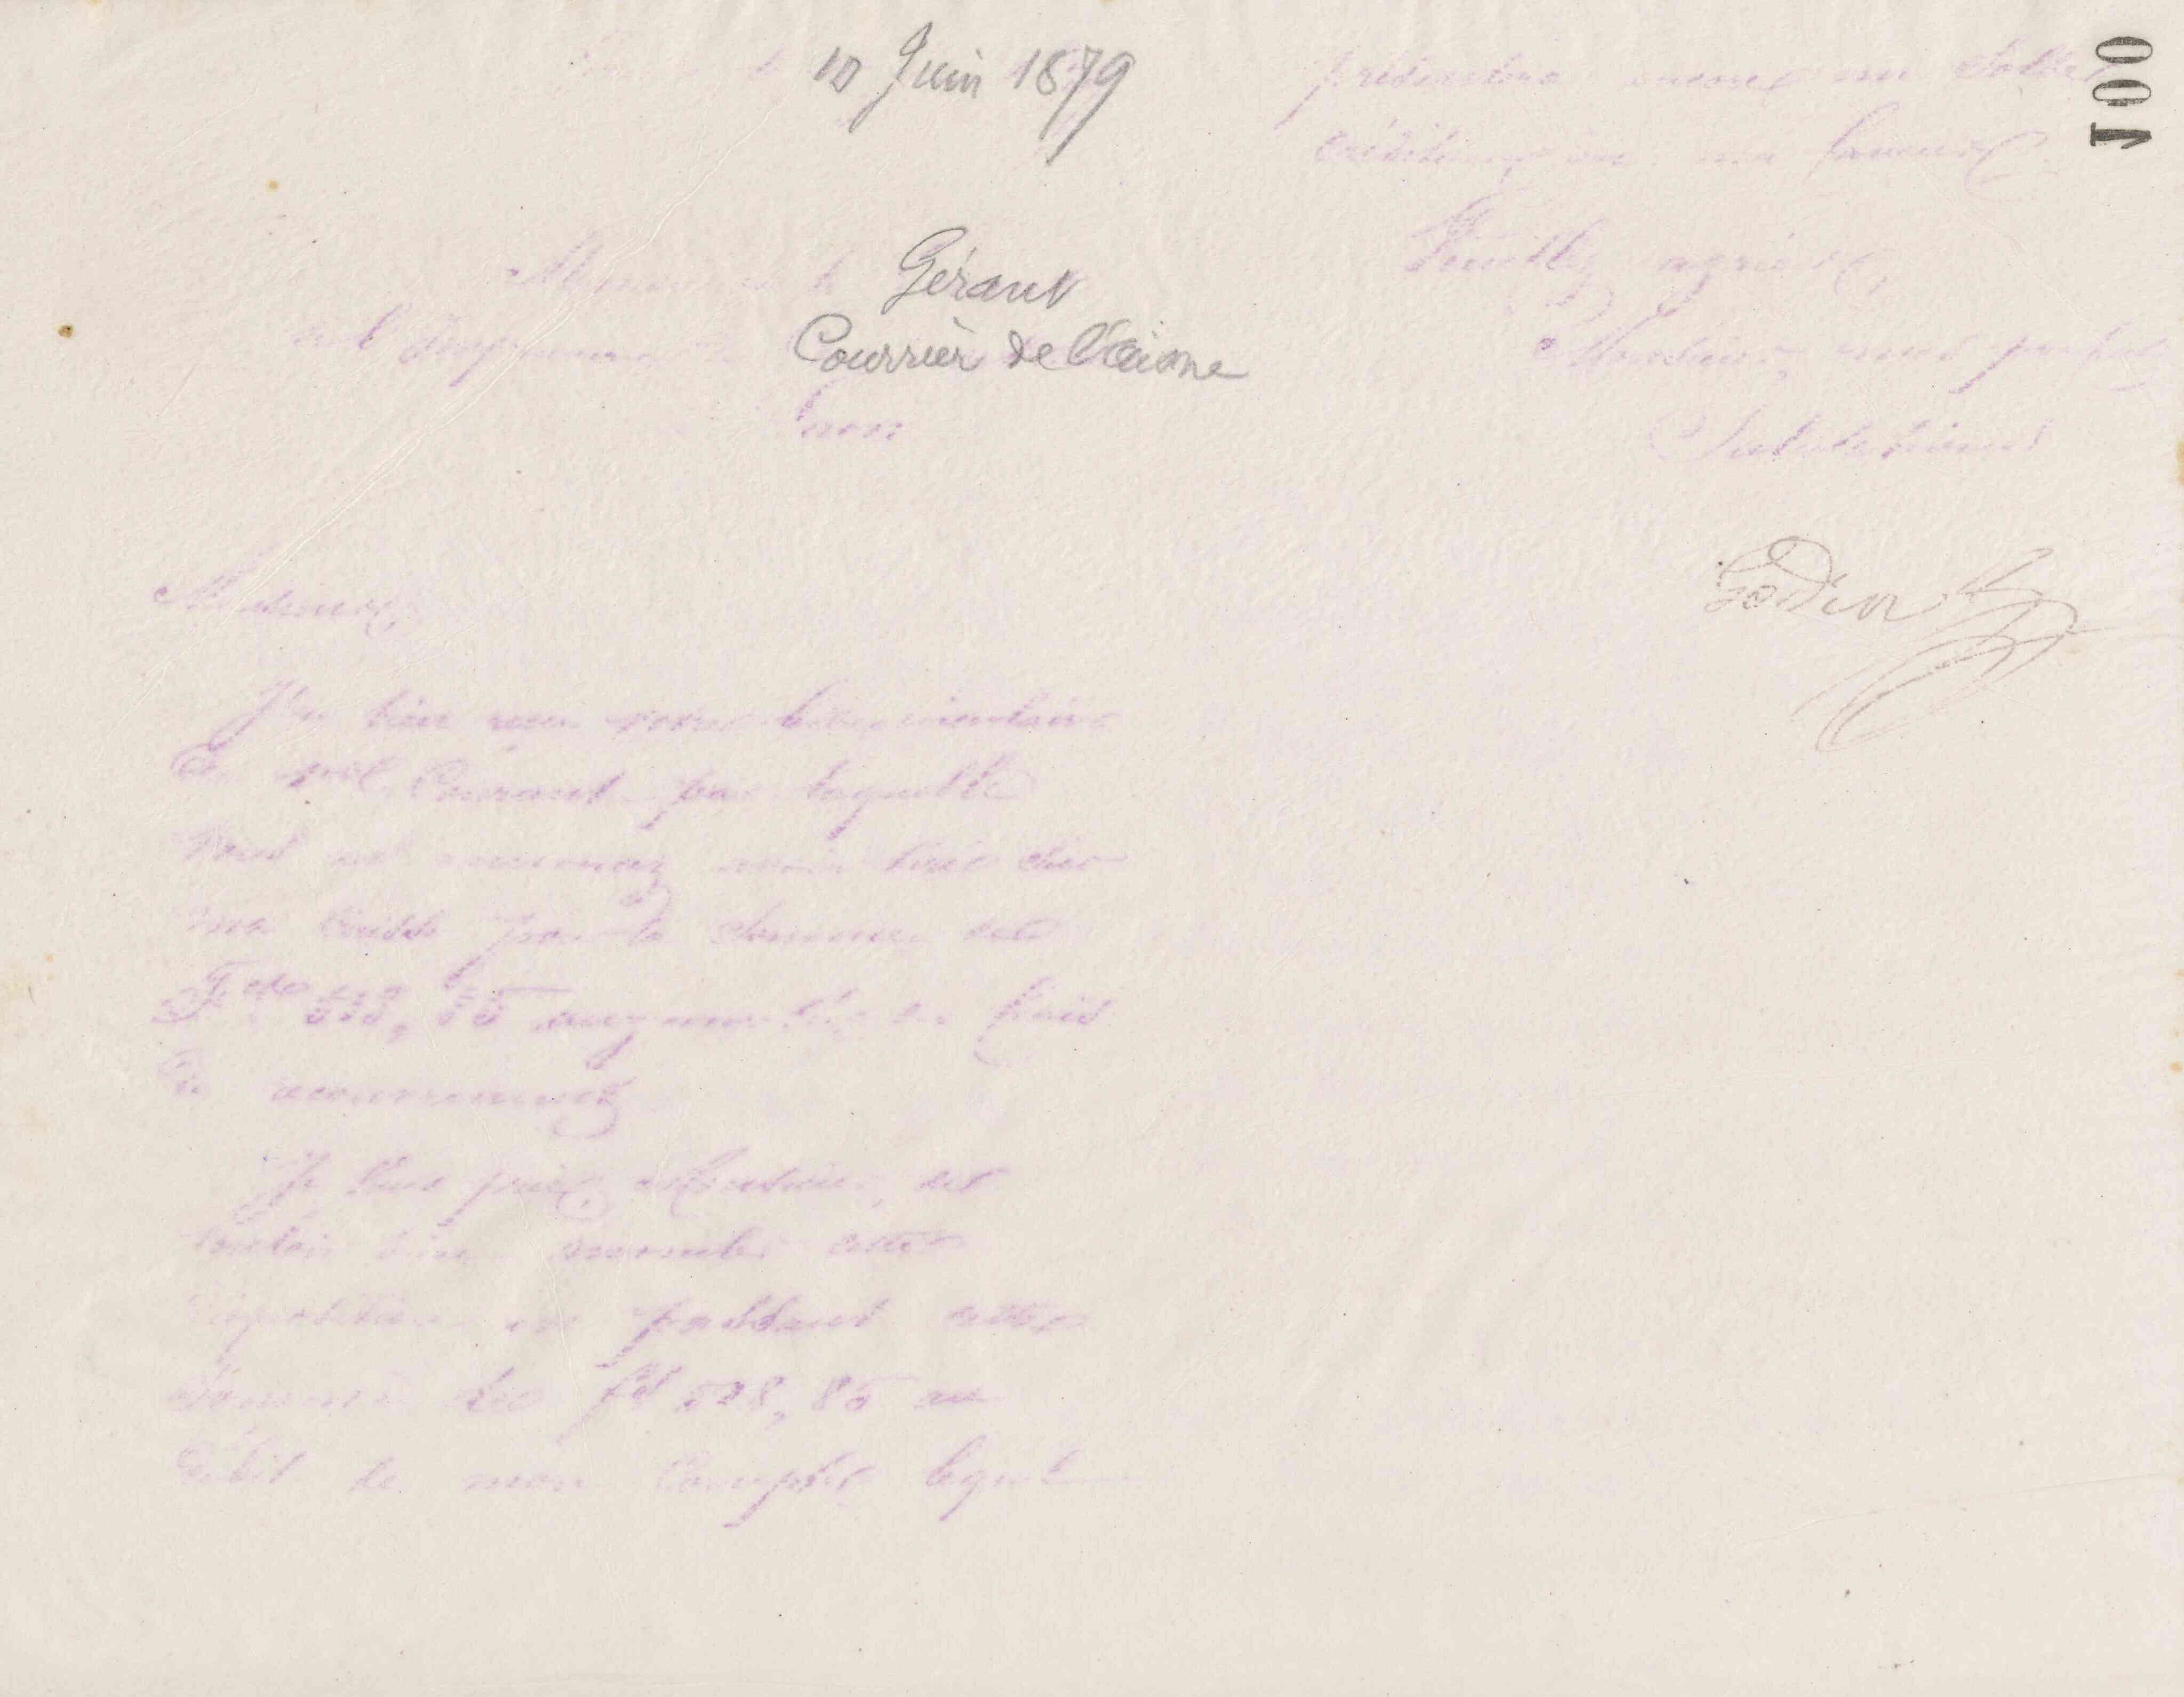 10 Juin 1879
Monsieur le Gérant
de l'Imprimerie du Courrier de l'aisne
Laon
Monsieur,
J'ai bien reçu votre lettre circulaire
Du Courant par laquelle
Vous m'annoncez avoir tiré sur
ma Caisse pour la somme de
augmentée des frais
De recouvrement
Je Vous prie, Monsieur, de
Vouloir bien annuler cette
disposition en passant cette
Somme de fcs 528,85 au
Débit de mon Compte lequel
présentera encore un Solde
créditeur en ma faveur
Veuillez agréer,
Monsieur, mes parfaites
Salutations
Godin
100